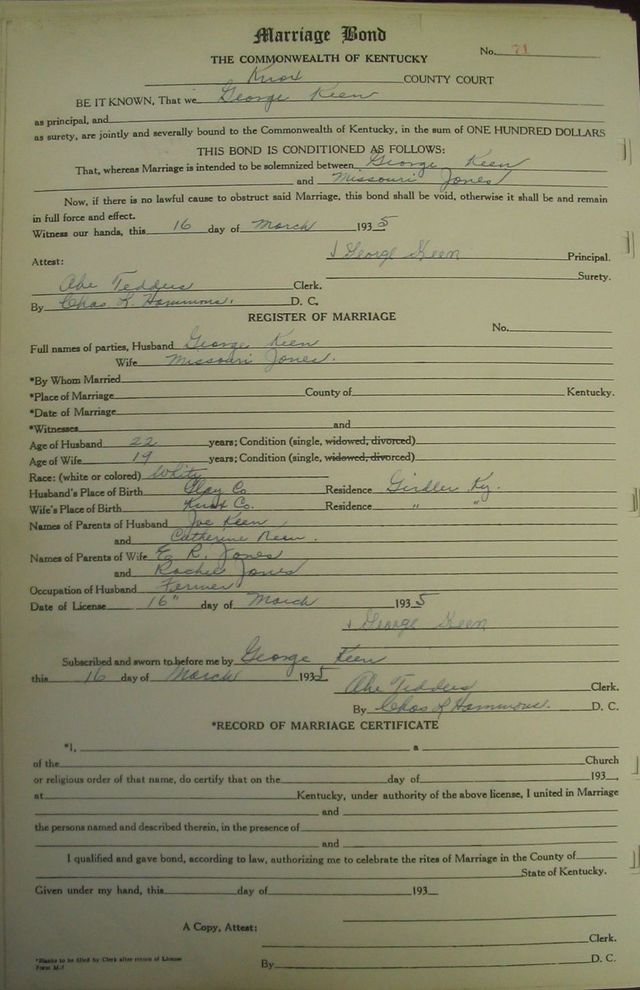 Marriage Bond
No. 71
THE COMMONWEALTH OF KENTUCKY
Knox COUNTY COURT
BE IT KNOWN, That we George Keen
as principal, and
as surety, are jointly and severally bound to the Commonwealth of Kentucky, in the sum of ONE HUNDRED DOLLARS
THIS BOND IS CONDITIONED AS FOLLOWS:
That, whereas Marriage is intended to be solemnized between George Keen
and Missouri Jones
Now, if there is no lawful cause to obstruct said Marriage, this bond shall be void, otherwise it shall be and remain
in full force and effect.
Witness our hands, this 16 day of March 1935
George Keen Principal.
Attest:
Surety.
Abe Tedders Clerk.
By Chas L. Hammons. D. C.
REGISTER OF MARRIAGE
No.
Full names of parties, Husband George Keen
Wife Missouri Jones.
*By Whom Married
*Place of Marriage County of Kentucky.
*Date of Marriage
*Witnesses and
Age of Husband 22 years; Condition (single, widowed, divorced)
Age of Wife 19 years; Condition (single, widowed, divorced)
Race: (white or colored) White
Husband's Place of Birth Clay Co Residence Girdler Ky.
Wife's Place of Birth Knox Co. Residence " "
Names of Parents of Husband Joe Keen
and Catherine Keen.
Names of Parents of Wife E. R. Jones
and Rachel Jones
Occupation of Husband Farmer
Date of License 16" day of March 1935
George Keen
Subscribed and sworn to before me by George Keen
this 16 day of March 1935
Abe Tedders Clerk.
By Chas L Hammons. D. C.
*RECORD OF MARRIAGE CERTIFICATE
*I, a
of the Church
or religious order of that name, do certify that on the day of 193
at Kentucky, under authority of the above license, I united in Marriage
and
the persons named and described therein, in the presence of
and
I qualified and gave bond, according to law, authorizing me to celebrate the rites of Marriage in the County of
State of Kentucky.
Given under my hand, this day of 193
A Copy, Attest:
Clerk.
By D. C.
*Blanks to be filled by Clerk after return of License
Form M-1